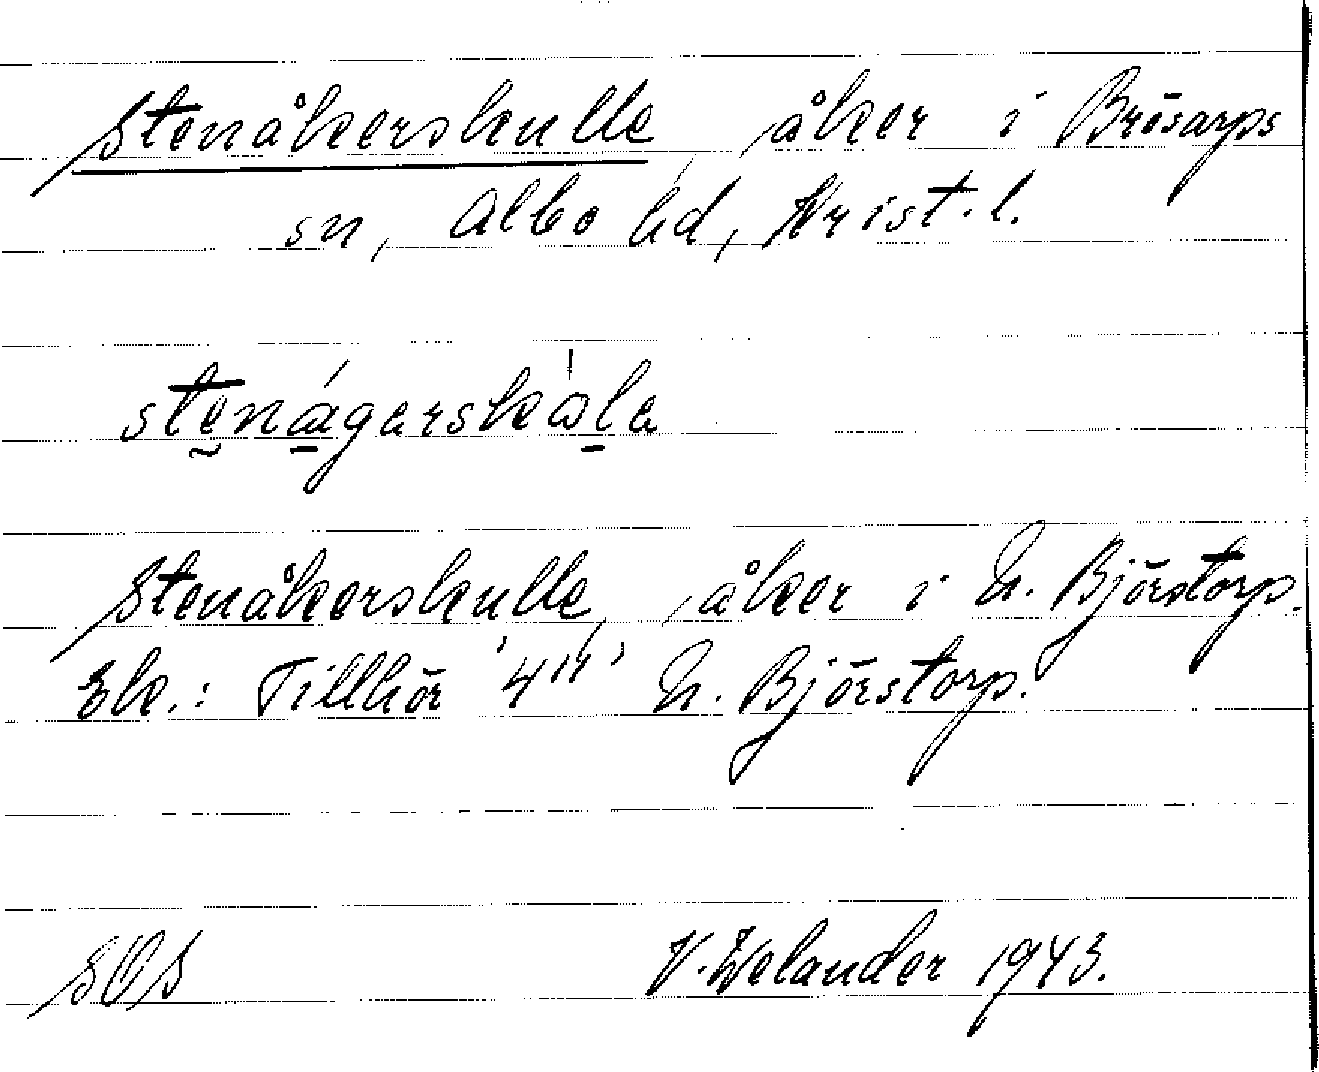 Stenåkerskulle, åker i Brösarps
sn, Albo hd, Krist. l.
Stenåkerskulle, åker i N. Björstorp.
Ek.: Tillhör '4¹⁴' N. Björstorp.
SOS V. Welander 1943.